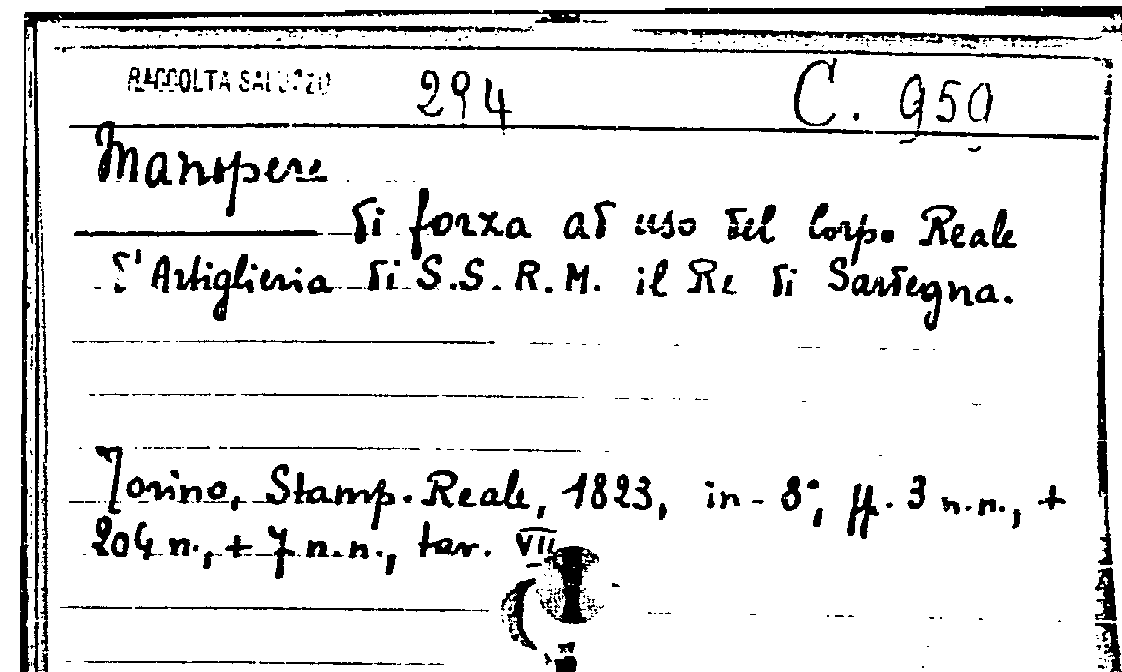 RACCOLTA SALUZZO 294 C. 950
Manopere
di forza ad uso del Corpo Reale
d'Artiglieria di S.S.R.M. il Re di Sardegna.
Torino, Stamp. Reale, 1823, in-8°, ff. 3 n.n., +
204 n., + 7 n.n., tav. VII